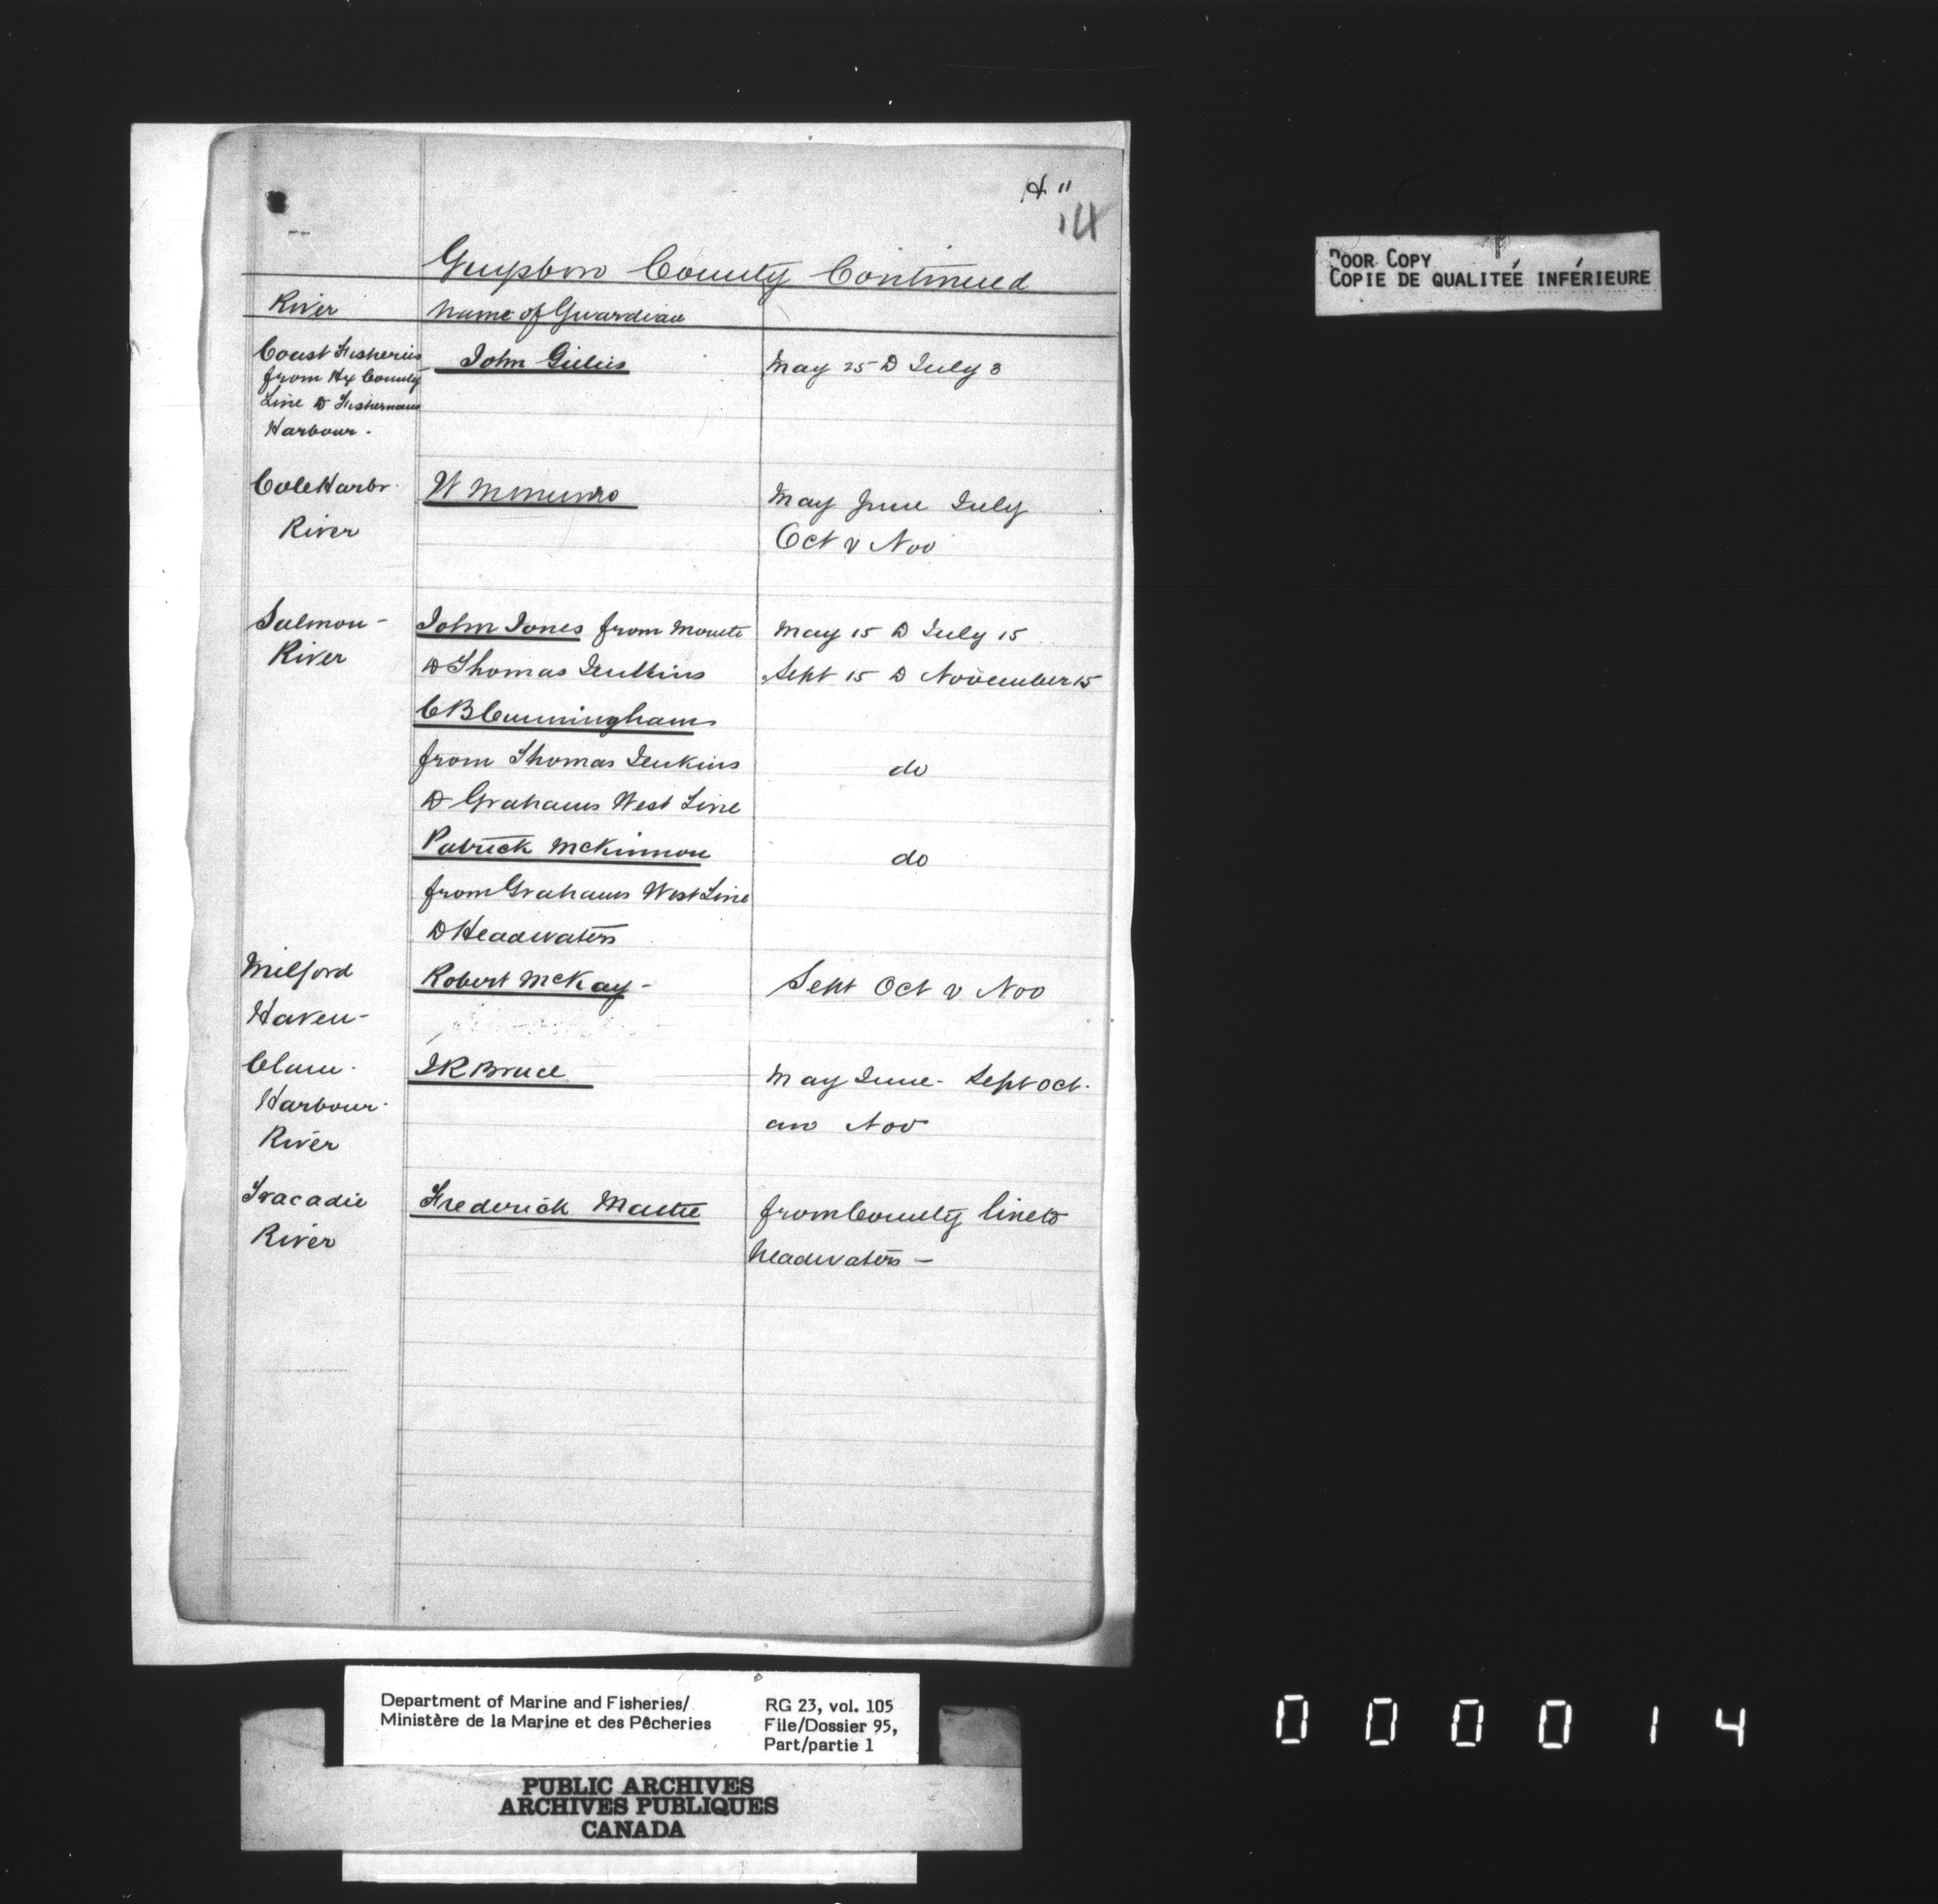 4"
14
Guysboro County Continued
River Name of Guardian
Coast Fisheries John Gillis May 25 to July 3
from Hx County
Line to Fishermans
Harbour.
Cole Harbr. W M Munro May June July
River Oct & Nov
Salmon- John Jones from Mouth May 15 to July 15
River to Thomas Jenkins Sept 15 to November 15
C B Cunningham
from Thomas Jenkins do
to Grahams West Line
Patrick McKinnon do
from Grahams West Line
to Headwaters
Milford Robert McKay- Sept Oct & Nov
Haven-
Clam. J R Bruce May June- Sept Oct.
Harbour. Nov
River
Tracadie Frederick from County line to
River headwaters-
POOR COPY
COPIE DE QUALITEÉ INFÉRIEURE
Department of Marine and Fisheries/ RG 23, vol. 105
Ministère de la Marine et des Pêcheries File/Dossier 95,
Part/partie 1
PUBLIC ARCHIVES
ARCHIVES PUBLIQUES
CANADA
000014